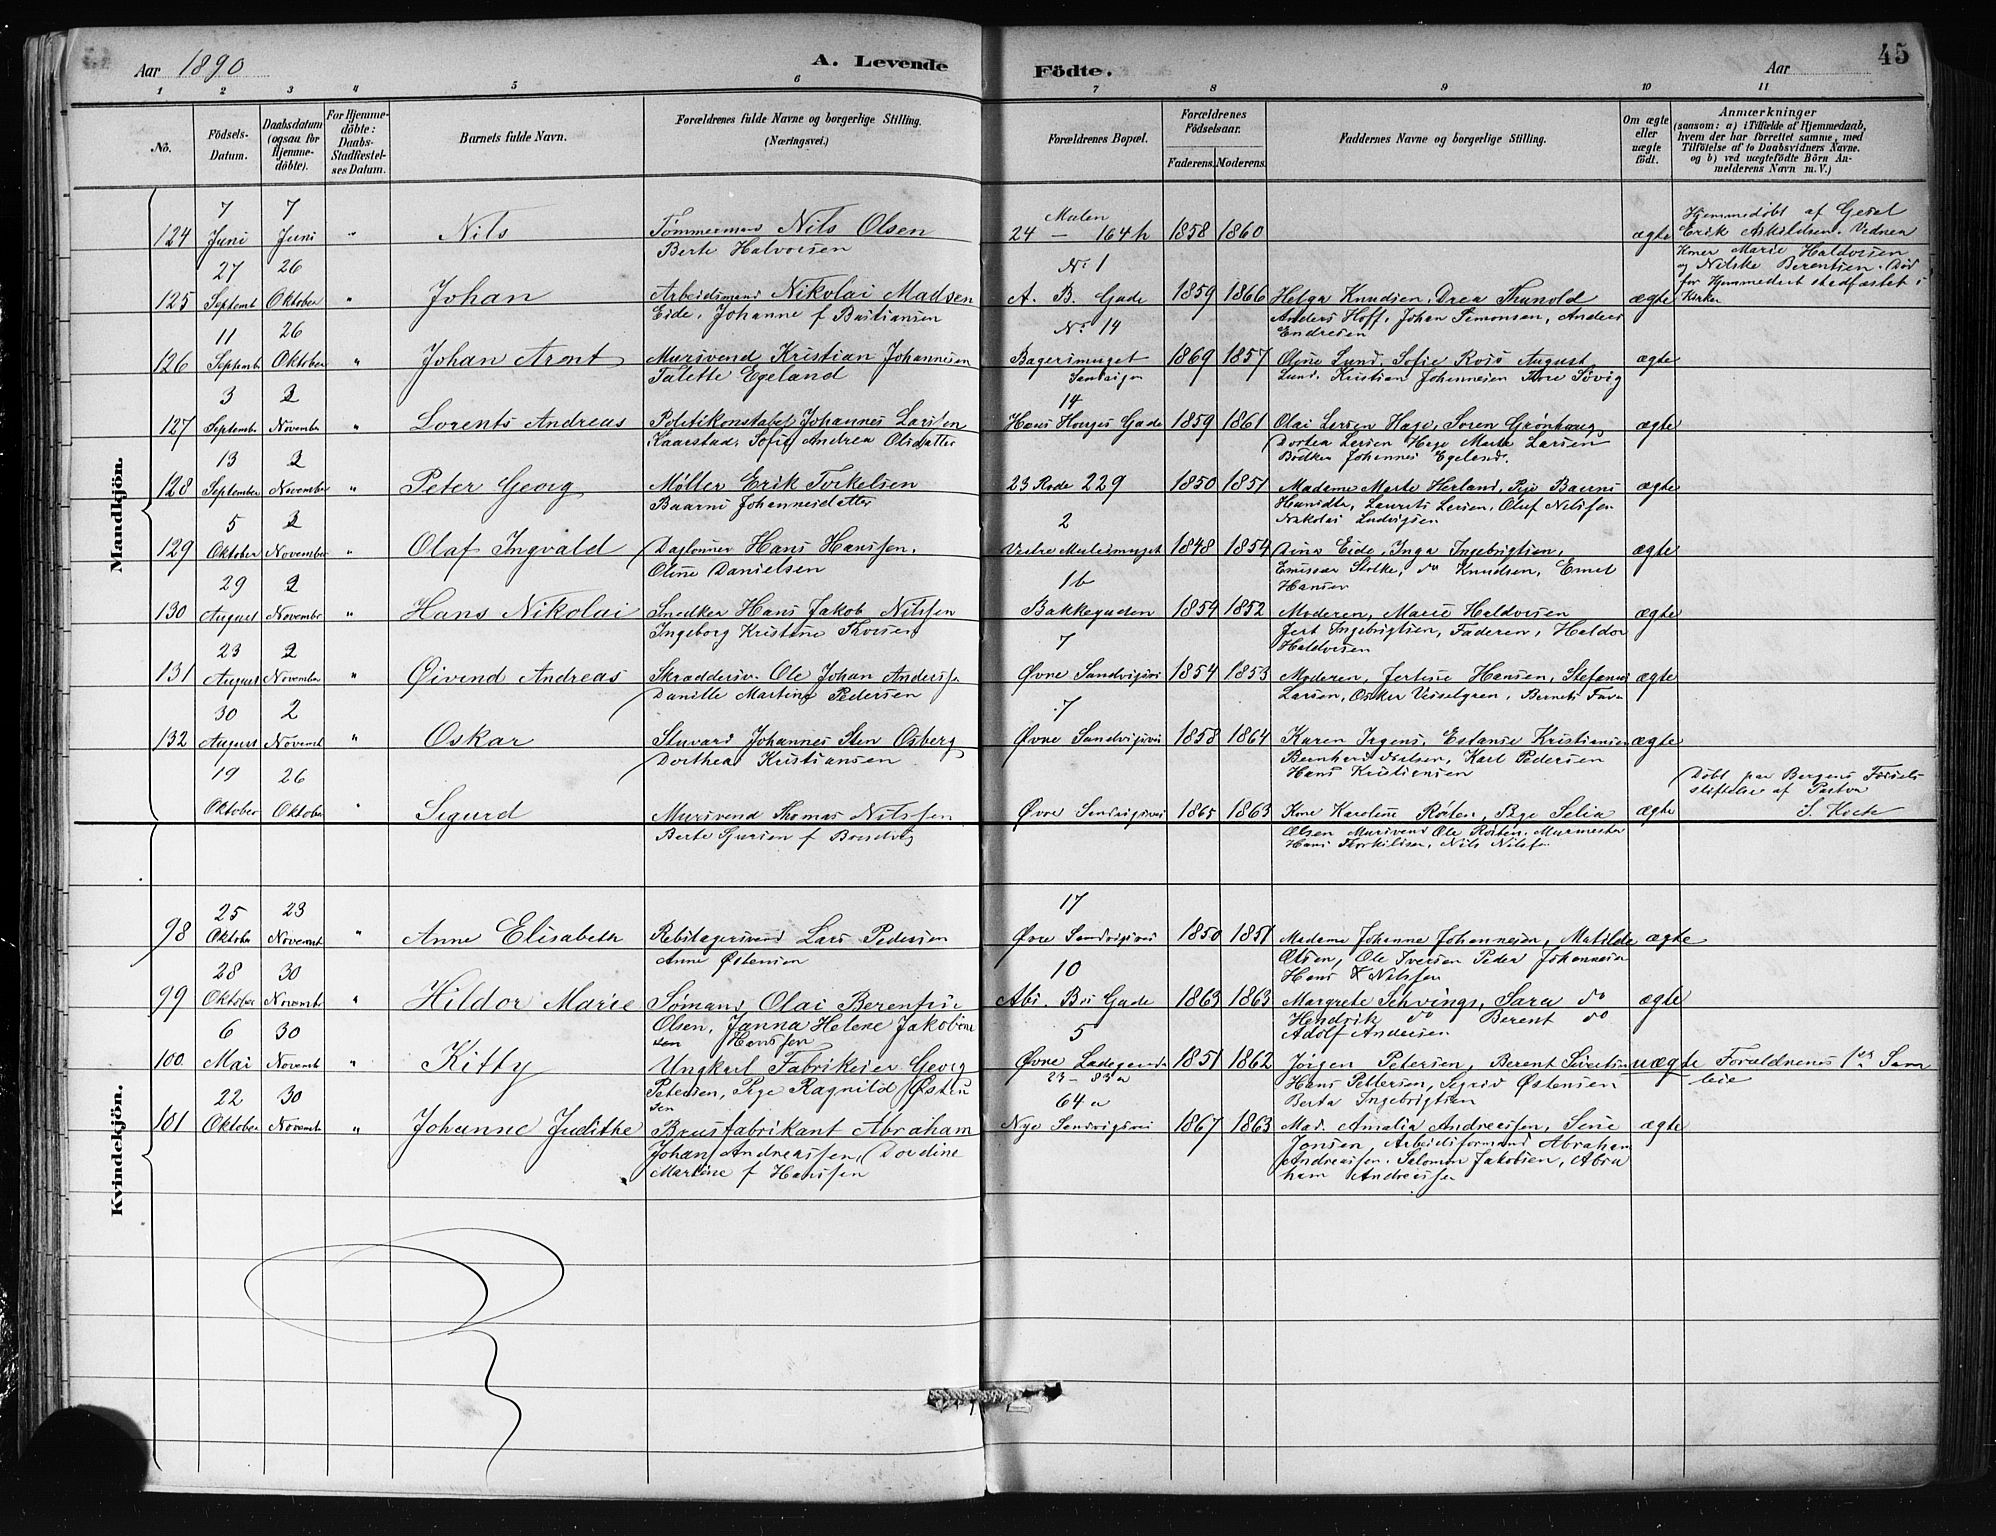 Aar 1890
A. Levende
Födte.
Aar
45
1 2 3 4 5 6 7 8 9 10 11
No.
Födsels-Datum.
Daabsdatum (ogsaa for Hjemme-döbte).
For Hjemme-döbte: Daabs-Stadfæstel-ses Datum.
Barnets fulde Navn.
Forældrenes fulde Navne og borgerlige Stilling. (Næringsvei.)
Forældrenes Bopæl.
Forældrenes Födselsaar.
Faderens. Moderens.
Faddernes Navne og borgerlige Stilling.
Om ægte eller uægte födt.
Anmærkninger
(saasom: a) i Tilfælde af Hjemmedaab, hvem der har forrettet samme, med Tilföielse af to Daabsvidners Navne. og b) ved uægtefödte Börn An-melderens Navn m. V.)
Mandkjön.
124 7 Juni 7 Juni " Nils Tømmermand Nils Olsen
Berte Halvorsen
Mulen
24 — 164 h 1858 1860 ægte
Hjemmedøbt af Gesel
Erik Askildsen. Vidner
Koner Marie Haldorsen
og Nilske Berentsen. Død
før Hjemmedaab stadfæstet i
Kirken
125 27 Septembr 26 Oktober " Johan Arbeidsmand Nikolai Madsen
Eide, Johanne f Bastiansen
No 1
A. B. Gade 1859 1866 Helga Knudsen, Drea Thunold ægte
Anders Hoff, Johan Simonsen, Anders
Endresen
126 11 Septembr 26 Oktober " Johan Arnt Mursvend Kristian Johannesen
Talette Egeland
No 14
Bagersmuget
Sandvigen 1869 1857 Oline Lund, Sofie Rois August ægte
Lund, Kristian Johannesen Tore Søvig
127 3 September 2 November " Lorents Andreas Politikonstabel Johannes Larsen
Kaarstad, Sofie Andrea Olsdatter
14
Hans Hauges Gade 1859 1861 Olai Larsen Hage, Søren Grønhaug ægte
Dortea Larsen Hage Marta Larsen
Bødker Johannes Egeland.
128 13 September 2 November " Peter Georg Møller Erik Torkelsen
Baarni Johannesdatter
23 Rode 229 1850 1851 Madame Marte Herland, Pige Baarni ægte
Laurits Larsen, Oluf Nilssen
Nikolai Ludvigsen
129 5 Oktober 2 November " Olaf Ingvald Daglønner Hans Hanssen,
Oline Danielsen
2
Vestre Mulesmuget 1848 1854 Dina Eide, Inga Ingebrigtsen, ægte
Emissær Stolke, do Knudsen, Emil
Hansen
130 29 August 2 November " Hans Nikolai Snedker Hans Jakob Nilssen
Ingeborg Kristine Thorsen
16
Bakkegaden 1854 1852 Moderen, Marie Haldorsen ægte
Jert Ingebrigtsen, Faderen, Haldor
Haldorsen
131 23 August 2 November " Øivend Andreas Skræddersv. Ole Johan Anderss
Danille Martine Pedersen
7
Øvre Sandvigsvei 1854 1853 Moderen, Jertine Hansen, Stefanus ægte
Larsen, Oskar Vesselgren, Barnets Fara
132 30 August 2 Novemb " Oskar Stuvard Johannes Sten Osberg
Dorthea Kristiansen
7
Øvre Sandvigsvei 1858 1864 Karen Irgens, Estanse Kristiansen ægte
Bernhard Nilsen, Karl Pedersen
Hans Kristiansen
19 Oktober 26 Oktober " Sigurd Mursvend Thomas Nilssen
Øvre Sandvigsvei 1865 1863 Kone Karoline Røiten, Pige Selia ægte
Olsen Mursvend Ole Røiten. Murmester
Hans Torkildsen, Nils Nilsen
Døbt paa Bergens Fødsels-
stiftelse af Pastor
S. Koete
Kvindekjön.
98 25 Oktober 23 Novemb " Anne Elisabeth Rebslagersvend Lars Pedersen
Anne Østensen
17
Øvre Sandvigsvei 1850 1851 Madame Johanne Johannesen, Matilde ægte
Olsen, Ole Iversen Peder Johannesen
Hans K Nilssen
99 28 Oktober 30 Novemb " Hildor Marie Sømand Olai Berentsen
Olsen, Janna Helene Jakobine
Hanssen
10
Abs. Bøi Gade 1863 1863 Margrete Schvings, Sara do ægte
Hendrik do Berent do
Adolf Andersen
100 6 Mai 30 Novemb " Kitty Ungkarl Fabrikeier Georg
Petersen, Pige Ragnild Østen
sen
5
Øvre Ladegaards
23 - 83 a 1851 1862 Jørgen Petersen, Berent Sivertsen uægte
Hans Pettersen, Sigrid Østensen
Berta Ingebrigtsen
Forældrenes 1ste Sam
leie
101 22 Oktober 30 Novemb " Johanne Judithe Brusfabrikant Abraham
Johan Andreassen, Dordine
Martine f Hanssen
64 a
Nye Sandvigsvei 1867 1863 Mad. Amalia Andreassen, Sine ægte
Jonsen, Arbeidsformand Abraham
Andreassen. Salomon Jakobsen, Abra
ham Andreassen